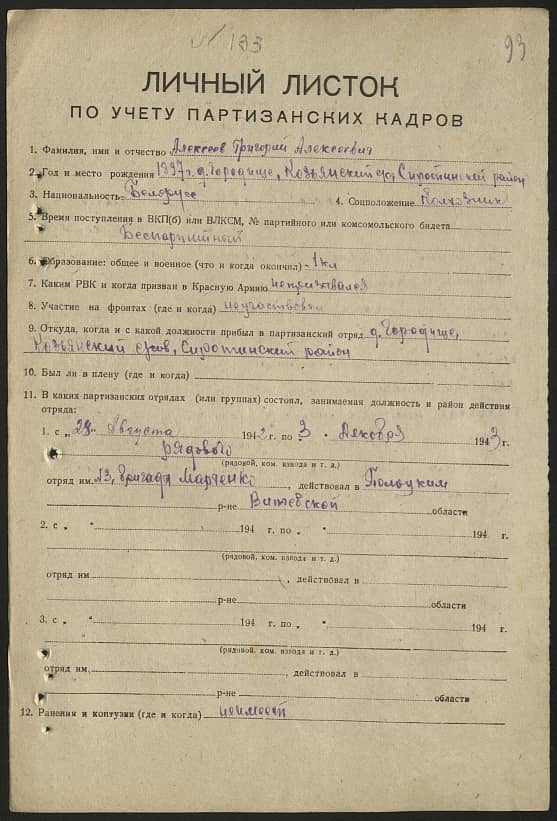 № 133
93
ЛИЧНЫЙ ЛИСТОК
ПО УЧЕТУ ПАРТИЗАНСКИХ КАДРОВ
1. Фамилия, имя и отчество Алексеев Григорий Алексеевич
2. Год и место рождения 1897г. д. Городище, Козьянский с/с, Сиротинский район
3. Национальность Белорусс 4. Соцположение Колхозник
5. Время поступления в ВКП(б) или ВЛКСМ, № партийного или комсомольского билета
Беспартийный
6. Образование: общее и военное (что и когда окончил) 1кл
7. Каким РВК и когда призван в Красную Армию непризывался
8. Участие на фронтах (где и когда) неучаствовал
9. Откуда, когда и с какой должности прибыл в партизанский отряд д. Городище,
Козьянский с/сов, Сиротинский район
10. Был ли в плену (где и когда)
11. В каких партизанских отрядах (или группах) состоял, занимаемая должность и район действия
отряда:
1. с „ " Августа 1942 г. по „ 3 " Декабря 1943 г.
рядовой
(рядовой, ком. взвода и т. д.)
отряд им. 13, бригада Марченко, действовал в Полоцким
р-не Витебской области
2. с „ " 194 г. по „ " 194 г.
(рядовой, ком. взвода и т. д.)
отряд им , действовал в
р-не области
3. с „ " 194 г. по „ " 194 г.
(рядовой, ком. взвода и т. д.)
отряд им. , действовал в
р-не области
12. Ранения и контузии (где и когда) неимеет